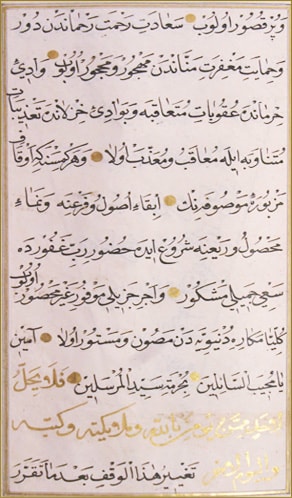 و پر قصور اولوب سعادت رحمت رحماندن دور
و حمایت مغفرت مناندن مهجور و محجور اولوب وادئ
حرماندن عقوبات متعاقبه و بوادئ خذلاندن تعذیبات
متناوبه ایله معاقب و معذب اولا و هر کمسنه که اوقاف
مزبوره موصوفه نك ابقاء اصول و فرعنه و نماء
محصول و ریعنه شروع ایده حضور رب غفورده
سعی جمیلی مشکور و اجر جزیلی موفور غیر محصور اولوب
مکاره دنیویه دن مصون و مستور اولا آمین
یا مجیب السائلین بحرمة سید المرسلین فلا یحل
یؤمن بالله و ملایکته و کتبه
تغییر هذا الوقف بعد ما تقرر